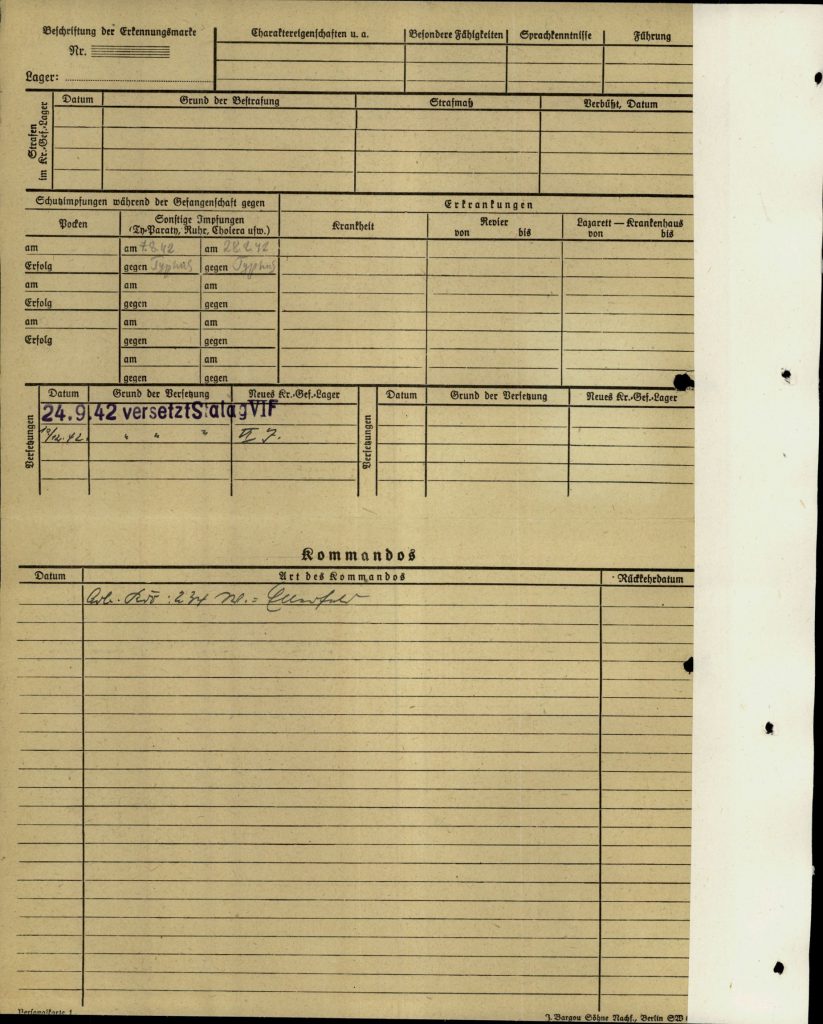 Beschriftung der Erkennungsmarke
Nr.
Lager:
Charaktereigenschaften u. a.
Besondere Fähigkeiten
Sprachkenntnisse
Führung
Strafen im Kr.-Gef.-Lager
Datum
Grund der Bestrafung
Strafmaß
Verbüßt, Datum
Schutzimpfungen während der Gefangenschaft gegen
Erkrankungen
Pocken
Sonstige Impfungen
(Ty-Paraty, Ruhr, Cholera usw.)
Krankheit
Revier
von bis
Lazarett — Krankenhaus
von bis
am am 7.8.42 am 28.2.42
Erfolg gegen Typhus gegen Typhus
am am am
Erfolg gegen gegen
am am am
Erfolg gegen gegen
am am
gegen gegen
Versetzungen
Datum Grund der Versetzung Neues Kr.-Gef.-Lager
24.9.42 versetzt Stalag VI F
10/12.42. " " " VI J.
Versetzungen
Datum Grund der Versetzung Neues Kr.-Gef.-Lager
Kommandos
Datum Art des Kommandos Rückkehrdatum
Arb. Kdo : 234
Personalkarte 1
J. Bargou Söhne Nachf., Berlin SW